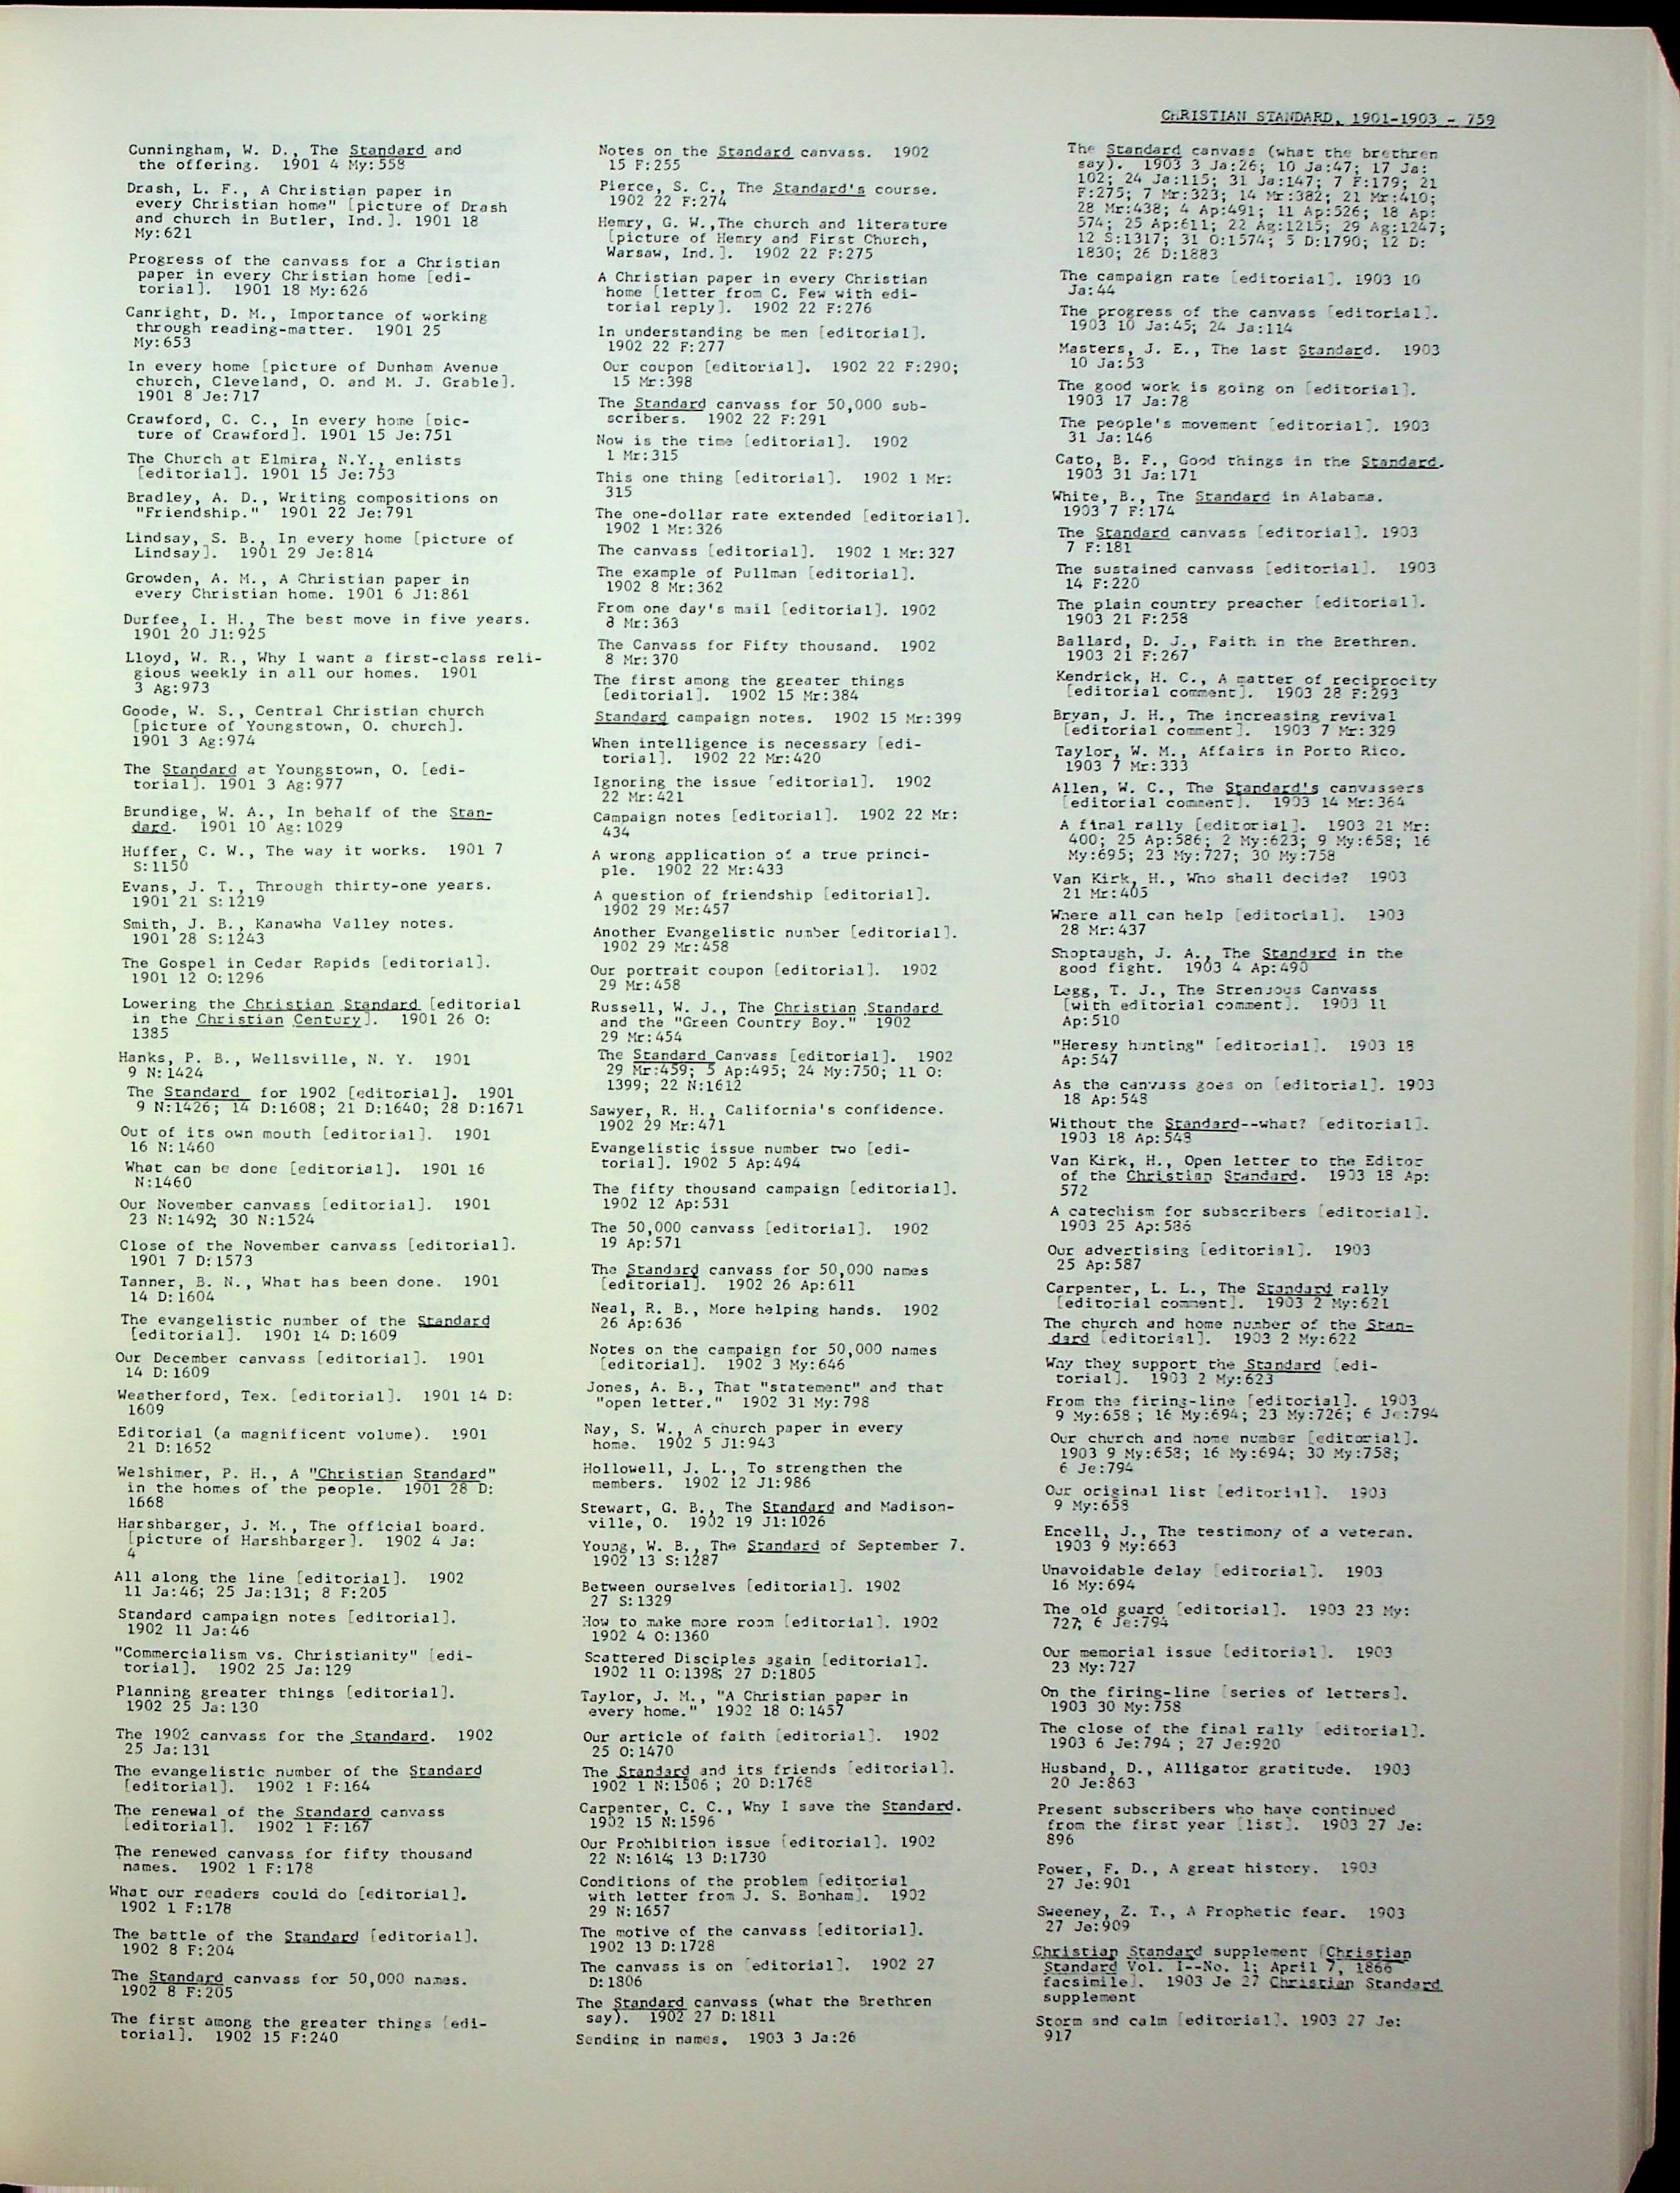 CHRISTIAN STANDARD, 1901-1903 - 759
Cunningham, W. D., The Standard and
the offering. 1901 4 My:558
Drash, L. F., A Christian paper in
every Christian home" [picture of Drash
and church in Butler, Ind.]. 1901 18
My:621
Progress of the canvass for a Christian
paper in every Christian home [edi-
torial]. 1901 18 My:626
Canright, D. M., Importance of working
through reading-matter. 1901 25
My:653
In every home [picture of Dunham Avenue
church, Cleveland, O. and M. J. Grable].
1901 8 Je:717
Crawford, C. C., In every home [pic-
ture of Crawford]. 1901 15 Je:751
The Church at Elmira, N.Y., enlists
[editorial]. 1901 15 Je:753
Bradley, A. D., Writing compositions on
"Friendship." 1901 22 Je:791
Lindsay, S. B., In every home [picture of
Lindsay]. 1901 29 Je:814
Growden, A. M., A Christian paper in
every Christian home. 1901 6 Jl:861
Durfee, I. H., The best move in five years.
1901 20 Jl:925
Lloyd, W. R., Why I want a first-class reli-
gious weekly in all our homes. 1901
3 Ag:973
Goode, W. S., Central Christian church
[picture of Youngstown, O. church].
1901 3 Ag:974
The Standard at Youngstown, O. [edi-
torial]. 1901 3 Ag:977
Brundige, W. A., In behalf of the Stan-
dard. 1901 10 Ag:1029
Huffer, C. W., The way it works. 1901 7
S:1150
Evans, J. T., Through thirty-one years.
1901 21 S:1219
Smith, J. B., Kanawha Valley notes.
1901 28 S:1243
The Gospel in Cedar Rapids [editorial].
1901 12 O:1296
Lowering the Christian Standard [editorial
in the Christian Century]. 1901 26 O:
1385
Hanks, P. B., Wellsville, N. Y. 1901
9 N:1424
The Standard for 1902 [editorial]. 1901
9 N:1426; 14 D:1608; 21 D:1640; 28 D:1671
Out of its own mouth [editorial]. 1901
16 N:1460
What can be done [editorial]. 1901 16
N:1460
Our November canvass [editorial]. 1901
23 N:1492; 30 N:1524
Close of the November canvass [editorial].
1901 7 D:1573
Tanner, B. N., What has been done. 1901
14 D:1604
The evangelistic number of the Standard
[editorial]. 1901 14 D:1609
Our December canvass [editorial]. 1901
14 D:1609
Weatherford, Tex. [editorial]. 1901 14 D:
1609
Editorial (a magnificent volume). 1901
21 D:1652
Welshimer, P. H., A "Christian Standard"
in the homes of the people. 1901 28 D:
1668
Harshbarger, J. M., The official board.
[picture of Harshbarger]. 1902 4 Ja:
4
All along the line [editorial]. 1902
11 Ja:46; 25 Ja:131; 8 F:205
Standard campaign notes [editorial].
1902 11 Ja:46
"Commercialism vs. Christianity" [edi-
torial]. 1902 25 Ja:129
Planning greater things [editorial].
1902 25 Ja:130
The 1902 canvass for the Standard. 1902
25 Ja:131
The evangelistic number of the Standard
[editorial]. 1902 1 F:164
The renewal of the Standard canvass
[editorial]. 1902 1 F:167
The renewed canvass for fifty thousand
names. 1902 1 F:178
What our readers could do [editorial].
1902 1 F:178
The battle of the Standard [editorial].
1902 8 F:204
The Standard canvass for 50,000 names.
1902 8 F:205
The first among the greater things [edi-
torial]. 1902 15 F:240
Notes on the Standard canvass. 1902
15 F:255
Pierce, S. C., The Standard's course.
1902 22 F:274
Hemry, G. W.,The church and literature
[picture of Hemry and First Church,
Warsaw, Ind.]. 1902 22 F:275
A Christian paper in every Christian
home [letter from C. Few with edi-
torial reply]. 1902 22 F:276
In understanding be men [editorial].
1902 22 F:277
Our coupon [editorial]. 1902 22 F:290;
15 Mr:398
The Standard canvass for 50,000 sub-
scribers. 1902 22 F:291
Now is the time [editorial]. 1902
1 Mr:315
This one thing [editorial]. 1902 1 Mr:
315
The one-dollar rate extended [editorial].
1902 1 Mr:326
The canvass [editorial]. 1902 1 Mr:327
The example of Pullman [editorial].
1902 8 Mr:362
From one day's mail [editorial]. 1902
8 Mr:363
The Canvass for Fifty thousand. 1902
8 Mr:370
The first among the greater things
[editorial]. 1902 15 Mr:384
Standard campaign notes. 1902 15 Mr:399
When intelligence is necessary [edi-
torial]. 1902 22 Mr:420
Ignoring the issue [editorial]. 1902
22 Mr:421
Campaign notes [editorial]. 1902 22 Mr:
434
A wrong application of a true princi-
ple. 1902 22 Mr:433
A question of friendship [editorial].
1902 29 Mr:457
Another Evangelistic number [editorial].
1902 29 Mr:458
Our portrait coupon [editorial]. 1902
29 Mr:458
Russell, W. J., The Christian Standard
and the "Green Country Boy." 1902
29 Mr:454
The Standard Canvass [editorial]. 1902
29 Mr:459; 5 Ap:495; 24 My:750; 11 O:
1399; 22 N:1612
Sawyer, R. H., California's confidence.
1902 29 Mr:471
Evangelistic issue number two [edi-
torial]. 1902 5 Ap:494
The fifty thousand campaign [editorial].
1902 12 Ap:531
The 50,000 canvass [editorial]. 1902
19 Ap:571
The Standard canvass for 50,000 names
[editorial]. 1902 26 Ap:611
Neal, R. B., More helping hands. 1902
26 Ap:636
Notes on the campaign for 50,000 names
[editorial]. 1902 3 My:646
Jones, A. B., That "statement" and that
"open letter." 1902 31 My:798
Nay, S. W., A church paper in every
home. 1902 5 Jl:943
Hollowell, J. L., To strengthen the
members. 1902 12 Jl:986
Stewart, G. B., The Standard and Madison-
ville, O. 1902 19 Jl:1026
Young, W. B., The Standard of September 7.
1902 13 S:1287
Between ourselves [editorial]. 1902
27 S:1329
How to make more room [editorial]. 1902
1902 4 O:1360
Scattered Disciples again [editorial].
1902 11 O:1398; 27 D:1805
Taylor, J. M., "A Christian paper in
every home." 1902 18 O:1457
Our article of faith [editorial]. 1902
25 O:1470
The Standard and its friends [editorial].
1902 1 N:1506 ; 20 D:1768
Carpenter, C. C., Why I save the Standard.
1902 15 N:1596
Our Prohibition issue [editorial]. 1902
22 N:1614; 13 D:1730
Conditions of the problem [editorial
with letter from J. S. Bonham]. 1902
29 N:1657
The motive of the canvass [editorial].
1902 13 D:1728
The canvass is on [editorial]. 1902 27
D:1806
The Standard canvass (what the Brethren
say). 1902 27 D:1811
Sending in names. 1903 3 Ja:26
The Standard canvass (what the brethren
say). 1903 3 Ja:26; 10 Ja:47; 17 Ja:
102; 24 Ja:115; 31 Ja:147; 7 F:179; 21
F:275; 7 Mr:323; 14 Mr:382; 21 Mr:410;
28 Mr:438; 4 Ap:491; 11 Ap:526; 18 Ap:
574; 25 Ap:611; 22 Ag:1215; 29 Ag:1247;
12 S:1317; 31 O:1574; 5 D:1790; 12 D:
1830; 26 D:1883
The campaign rate [editorial]. 1903 10
Ja:44
The progress of the canvass [editorial].
1903 10 Ja:45; 24 Ja:114
Masters, J. E., The last Standard. 1903
10 Ja:53
The good work is going on [editorial].
1903 17 Ja:78
The people's movement [editorial]. 1903
31 Ja:146
Cato, B. F., Good things in the Standard.
1903 31 Ja:171
White, B., The Standard in Alabama.
1903 7 F:174
The Standard canvass [editorial]. 1903
7 F:181
The sustained canvass [editorial]. 1903
14 F:220
The plain country preacher [editorial].
1903 21 F:258
Ballard, D. J., Faith in the Brethren.
1903 21 F:267
Kendrick, H. C., A matter of reciprocity
[editorial comment]. 1903 28 F:293
Bryan, J. H., The increasing revival
[editorial comment]. 1903 7 Mr:329
Taylor, W. M., Affairs in Porto Rico.
1903 7 Mr:333
Allen, W. C., The Standard's canvassers
[editorial comment]. 1903 14 Mr:364
A final rally [editorial]. 1903 21 Mr:
400; 25 Ap:586; 2 My:623; 9 My:658; 16
My:695; 23 My:727; 30 My:758
Van Kirk, H., Who shall decide? 1903
21 Mr:405
Where all can help [editorial]. 1903
28 Mr:437
Shoptaugh, J. A., The Standard in the
good fight. 1903 4 Ap:490
Legg, T. J., The Strenuous Canvass
[with editorial comment]. 1903 11
Ap:510
"Heresy hunting" [editorial]. 1903 18
Ap:547
As the canvass goes on [editorial]. 1903
18 Ap:548
Without the Standard--what? [editorial].
1903 18 Ap:548
Van Kirk, H., Open letter to the Editor
of the Christian Standard. 1903 18 Ap:
572
A catechism for subscribers [editorial].
1903 25 Ap:586
Our advertising [editorial]. 1903
25 Ap:587
Carpenter, L. L., The Standard rally
[editorial comment]. 1903 2 My:621
The church and home number of the Stan-
dard [editorial]. 1903 2 My:622
Why they support the Standard [edi-
torial]. 1903 2 My:623
From the firing-line [editorial]. 1903
9 My:658 ; 16 My:694; 23 My:726; 6 Je:794
Our church and home number [editorial].
1903 9 My:658; 16 My:694; 30 My:758;
6 Je:794
Our original list [editorial]. 1903
9 My:658
Encell, J., The testimony of a veteran.
1903 9 My:663
Unavoidable delay [editorial]. 1903
16 My:694
The old guard [editorial]. 1903 23 My:
727; 6 Je:794
Our memorial issue [editorial]. 1903
23 My:727
On the firing-line [series of letters].
1903 30 My:758
The close of the final rally [editorial].
1903 6 Je:794 ; 27 Je:920
Husband, D., Alligator gratitude. 1903
20 Je:863
Present subscribers who have continued
from the first year [list]. 1903 27 Je:
896
Power, F. D., A great history. 1903
27 Je:901
Sweeney, Z. T., A Prophetic fear. 1903
27 Je:909
Christian Standard supplement [Christian
Standard Vol. I--No. 1; April 7, 1866
facsimile]. 1903 Je 27 Christian Standard
supplement
Storm and calm [editorial]. 1903 27 Je:
917